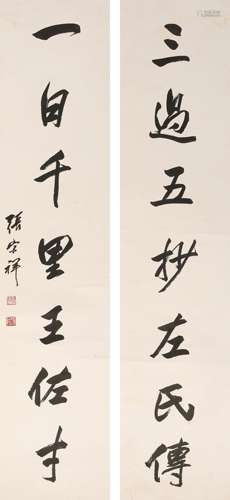 三過五抄左氏傳
一日千里王佐才
張宗祥